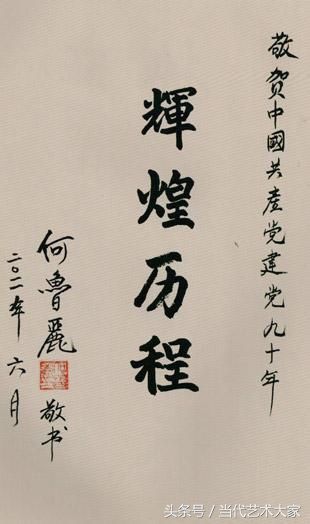 敬贺中國共產党建党九十年
輝煌历程
何魯麗敬书
二〇一一年六月
头条号/当代艺术大家